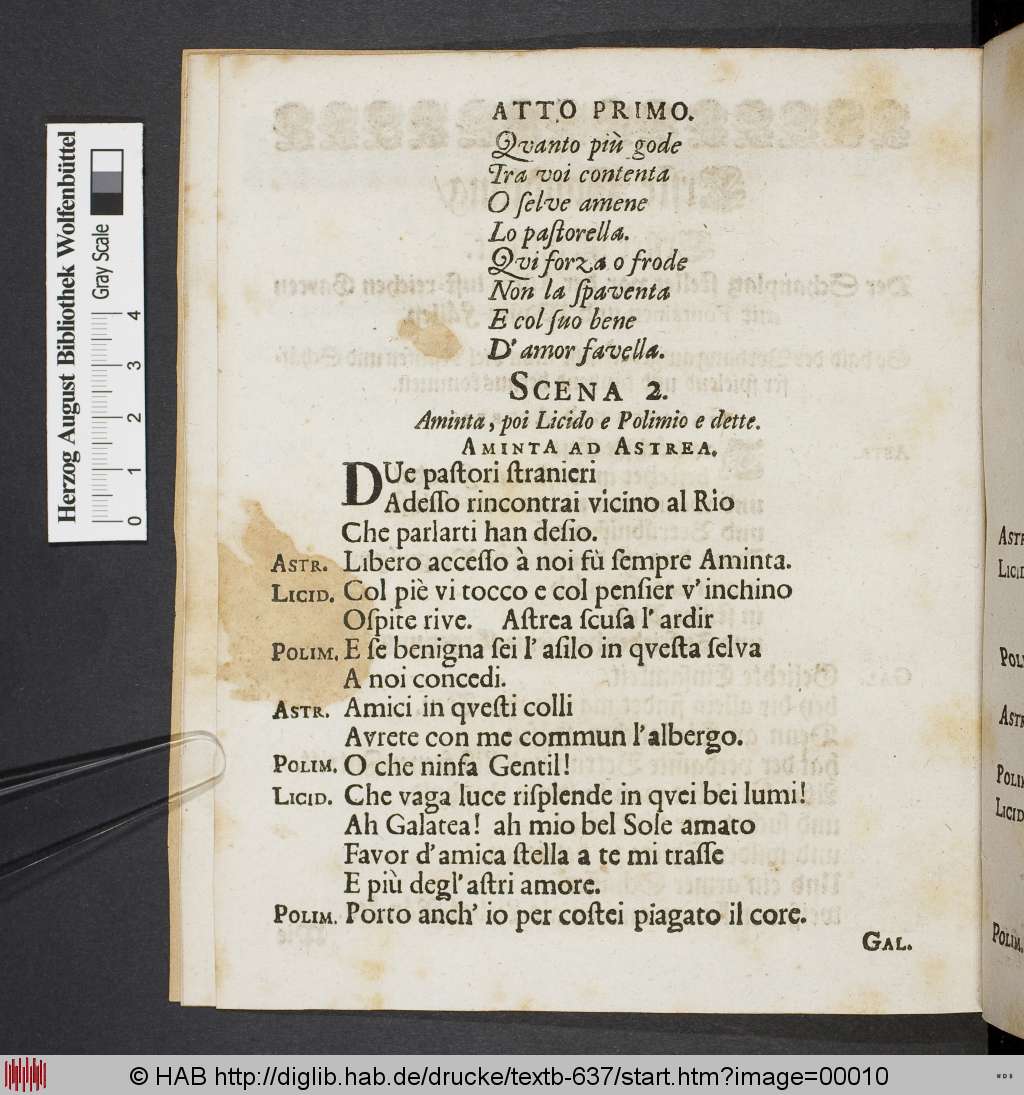 ATTO PRIMO.
Qvanto più gode
Tra voi contenta
O ſelve amene
Lo paſtorella.
Qvi forza o frode
Non la ſpaventa
E col ſuo bene
D' amor favella.
SCENA 2.
Aminta, poi Licido e Polimio e dette.
AMINTA AD ASTREA.
DUe paſtori ſtranieri
Adeſſo rincontrai vicino al Rio
Che parlarti han deſio.
ASTR. Libero acceſſo à noi fù ſempre Aminta.
LICID. Col piè vi tocco e col penſier v' inchino
Oſpite rive. Aſtrea ſcuſa l' ardir
POLIM. E ſe benigna ſei l' aſilo in qveſta ſelva
A noi concedi.
ASTR. Amici in qveſti colli
Avrete con me commun l'albergo.
POLIM. O che ninfa Gentil!
LICID. Che vaga luce riſplende in qvei bei lumi!
Ah Galatea! ah mio bel Sole amato
Favor d'amica ſtella a te mi traſſe
E più degl' aſtri amore.
POLIM. Porto anch' io per coſtei piagato il core.
GAL.
Herzog August Bibliothek Wolfenbüttel
Gray Scale
0 1 2 3 4
LICID
POLIM.
© HAB http://diglib.hab.de/drucke/textb-637/start.htm?image=00010